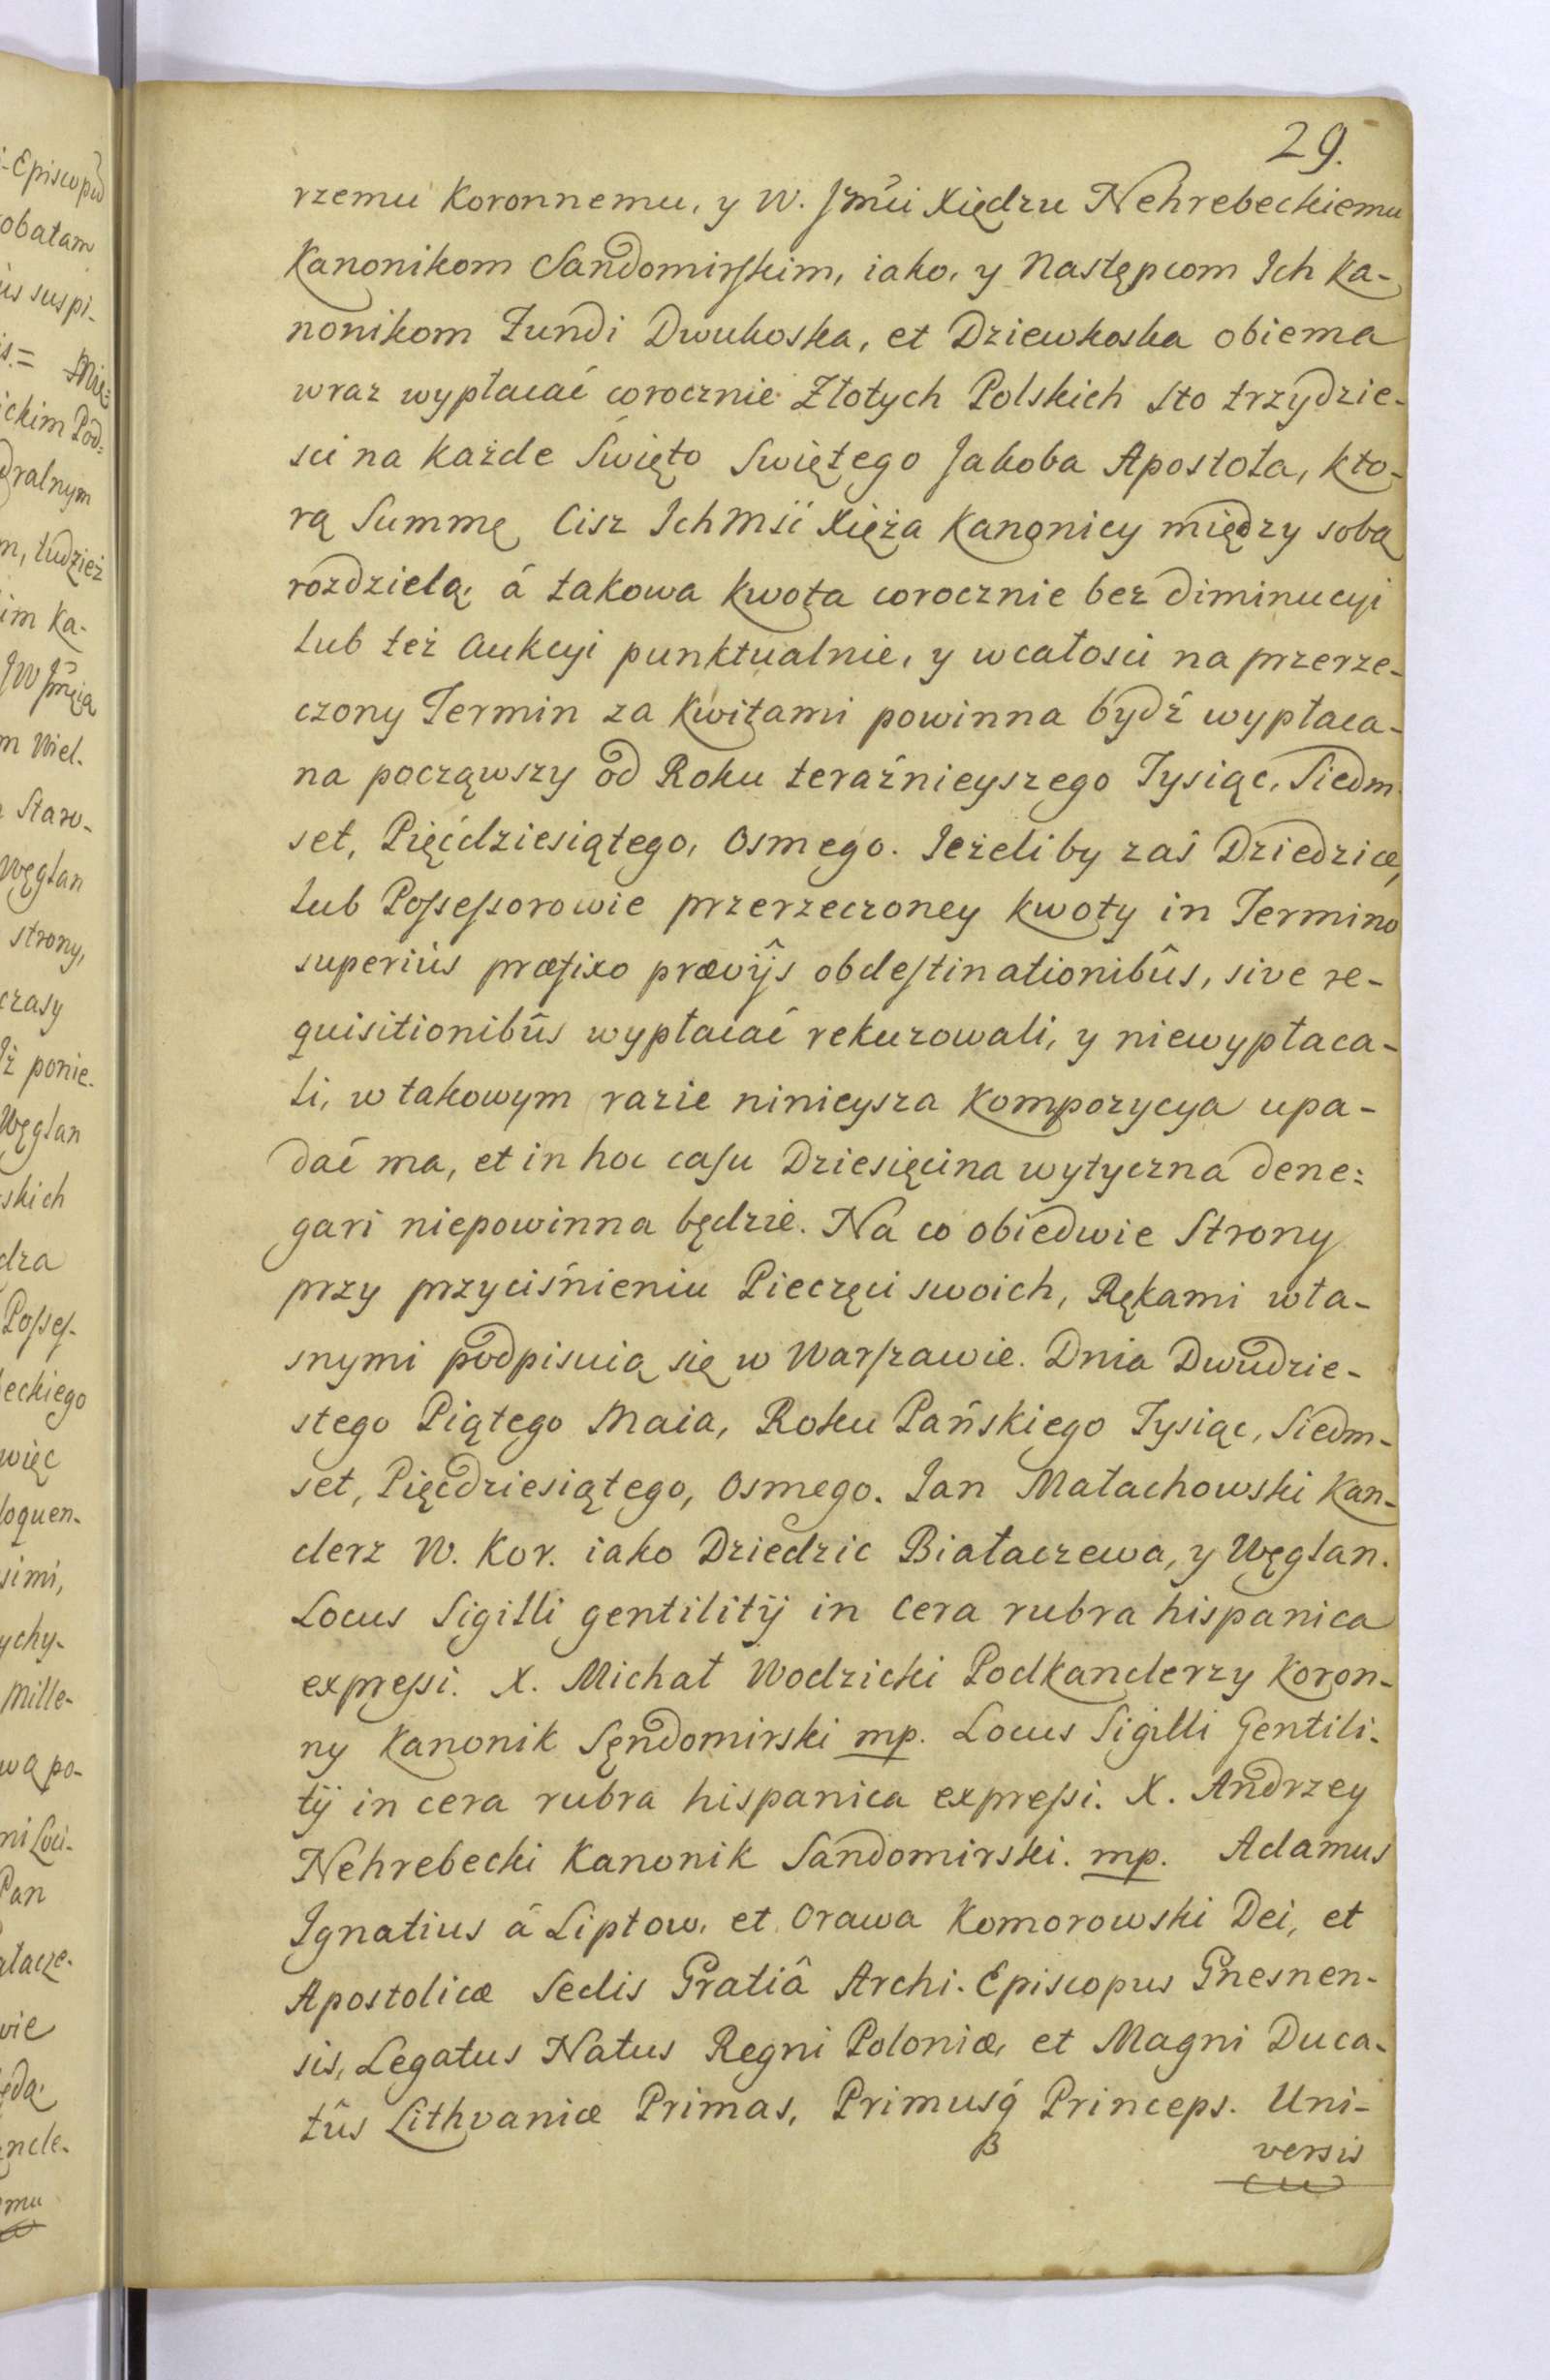 29.
rzemu Koronnemu, y W. Jmci Xiędzu Nehrebeckiemu
Kanonikom Sandomirskim, iako, y Następcom Ich Ka-
nonikom Fundi Dwukoska, et Dziewkoska obiema
wraz wypłacać corocznie Złotych Polskich Sto trzydzie-
sci na każde Święto Swiętego Jakoba Apostoła, kto-
rą Summę Cisz Ichmśi Xięża Kanonicy między sobą
rozdzielą, á takowa kwota corocznie bez diminucyi
lub też aukcyi punktualnie, y wcałosci na przerze-
czony Termin za kwitami powinna bydź wypłaca-
na począwszy od Roku teraźnieyszego Tysiąc, Siedm-
set, Pięćdziesiątego, Osmego. Jeżeliby zaś Dziedzice,
lub Possessorowie przerzeczoney kwoty in Termino
superiùs præfixo prævijs obdestinationibûs, sive re-
quisitionibûs wypłacać rekuzowali, y niewypłaca-
li, w takowym razie ninieysza Kompozycya upa-
dać ma, et in hoc casu Dziesięcina wytyczna dene=
gari niepowinna będzie. Na co obiedwie Strony
przy przyciśnieniu Pieczęci swoich, Rękami wła-
snymi podpisuią się w Warszawie. Dnia Dwudzie-
stego Piątego Maia, Roku Pańskiego Tysiąc, Siedm-
set, Pięcdziesiątego, Osmego. Jan Małachowski Kan-
clerz W. Kor. iako Dziedzic Białaczewa, y Węglan.
Locus Sigilli gentilitij in Cera rubra hispanica
expressi. X. Michał Wodzicki Podkanclerzy Koron-
ny Kanonik Sęndomirski mp. Locus Sigilli Gentili-
tij in cera rubra hispanica expressi. X. Andrzey
Nehrebecki Kanonik Sandomirski. mp. Adamus
Ignatius á Liptow, et Orawa Komorowski Dei, et
Apostolicæ Sedis Gratiâ Archi-Episcopus Gnesnen-
sis, Legatus Natus Regni Poloniæ, et Magni Duca-
tûs Lithvaniæ Primas, Primusq́ Princeps. Uni-
versis
-Episcopũ
obatam
us suspi-
s.= Mię=
ickim Pod=
dralnym
m, tudzież
im Ka-
m Wiel.
Staro-
Węglan
strony,
czasy
Iż ponie-
Węglan
skich
dza
Posses-
eckiego
więc
loquen-
simi,
ychy-
Mille-
wą po-
ni Loci-
Pan
łacze-
wie
ędą,
ancle-
mu